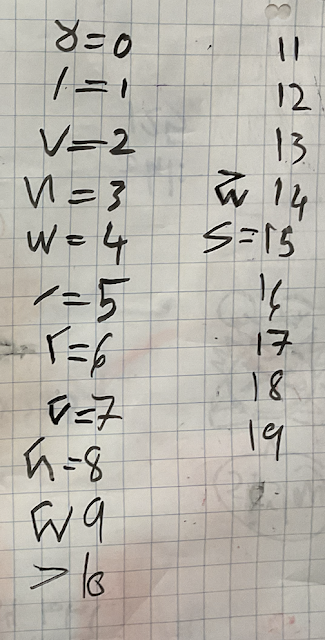 =0
/=1
V=2
И=3
W=4
=5
=6
=7
=8
9
> 10
11
12
13
14
S=15
16
17
18
19